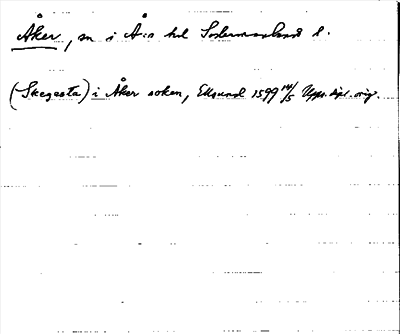 Åker, sn i Å:s hd Södermanland l.
(Skegasta) i Åker soken, Eksund 1599 14/5 Upps. dipl. orig.